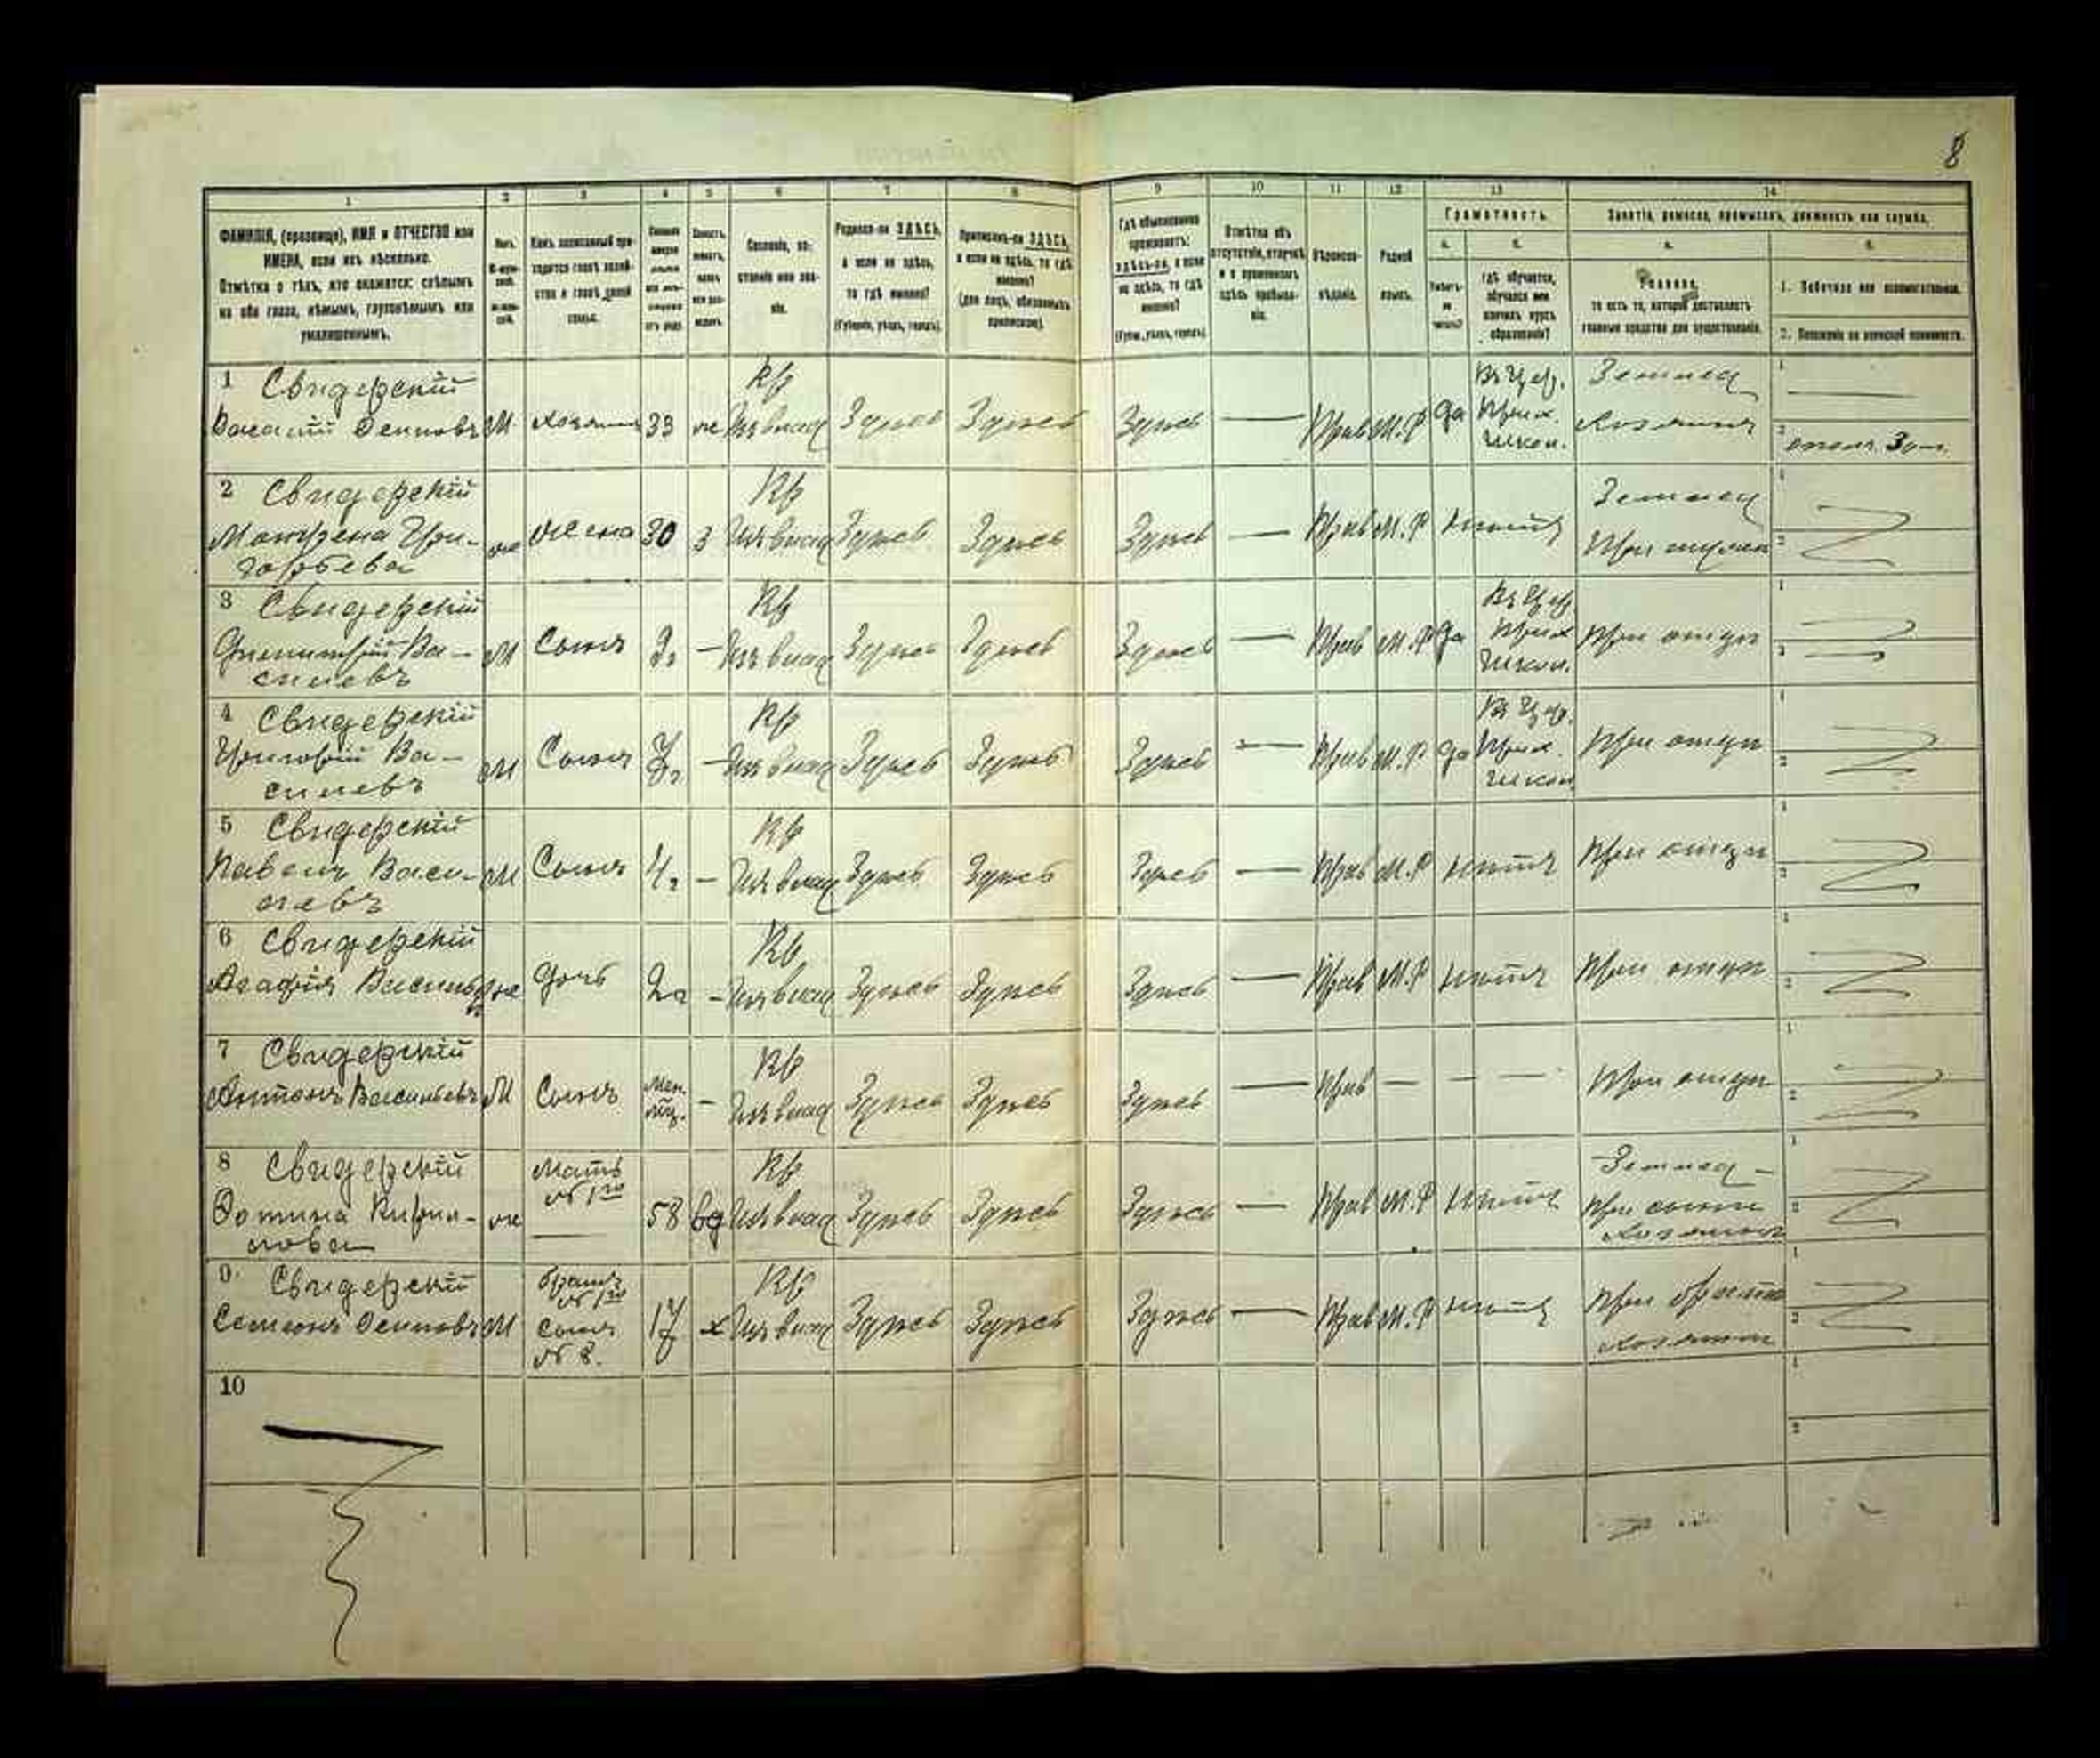 8
1 2 3 4 5 6 7 8 9 10 11 12 13 14
ФАМИЛІЯ, (прозвище), ИМЯ и ОТЧЕСТВО или
ИМЕНА, если ихъ нѣсколько.
Отмѣтка о тѣхъ, кто окажется: слѣпымъ
на оба глаза, нѣмымъ, глухонѣмымъ или
умалишеннымъ.
Полъ.
Какъ записанный при-
ходится главѣ хозяй-
ства и главѣ своей
семьи.
Сословіе, со-
стояніе или зва-
ніе.
Родился-ли ЗДѢСЬ,
а если не здѣсь,
то гдѣ именно?
(Губернія, уѣздъ, городъ).
Приписанъ-ли ЗДѢСЬ,
а если не здѣсь, то гдѣ
именно?
(для лицъ, обязанныхъ
припискою).
Гдѣ обыкновенно
проживаетъ:
здѣсь-ли, а если
не здѣсь, то гдѣ
именно?
(Губ., уѣздъ, городъ).
Отмѣтка объ
отсутствіи, отлучкѣ
и о временномъ
здѣсь пребыва-
ніи.
Вѣроиспо-
вѣданіе.
Родной
языкъ.
Грамотность.
а. б.
Умѣетъ-
ли
читать?
гдѣ обучается,
обучался или
кончилъ курсъ
образованія?
Занятіе, ремесло, промыселъ, должность или служба.
а. б.
Главное,
то есть то, которое доставляетъ
главныя средства для существованія.
1. Побочное или вспомогательное.
2. Положеніе по воинской повинности.
1 Свидерскій Кр Въ Цер. Землед 1
Василій Осиповъ М хозяинъ 33 ж Изъ влад Здѣсь Здѣсь Здѣсь — Прав М.Р да Прих. Хозяинъ 2
Школ.
2 Свидерскій Кр Землед 1
Матрена Гри- ж жена 30 З Изъ влад Здѣсь Здѣсь Здѣсь — Прав М.Р нѣтъ При мужѣ 2
горьева
3 Свидерскій Кр Въ Цер 1
Димитрій Ва- М Сынъ — Изъ влад Здѣсь Здѣсь Здѣсь — Прав М.Р да Прих При отцѣ 2
силіевъ Школ.
4 Свидерскій Кр Въ Цер. 1
Григорій Ва- М Сынъ — Изъ влад Здѣсь Здѣсь Здѣсь — Прав М.Р да Прих. При отцѣ 2
силіевъ Школ
5 Свидерскій Кр 1
Павелъ Васи- М Сынъ — Изъ влад Здѣсь Здѣсь Здѣсь — Прав М.Р нѣтъ При отцѣ 2
лiевъ
6 Свидерскій Кр 1
Агафія ж дочь — Изъ влад Здѣсь Здѣсь Здѣсь — Прав М.Р нѣтъ При отцѣ 2
7 Свидерскій Кр 1
Антонъ Васильевъ М Сынъ — Изъ влад Здѣсь Здѣсь Здѣсь — Прав — — — При отцѣ 2
8 Свидерскій Мать Кр Землед - 1
№ 1го
Домина Кирил- ж 58 вд Изъ влад Здѣсь Здѣсь Здѣсь — Прав М.Р нѣтъ При сынѣ 2
лова хозяинѣ
9. Свидерскій братъ Кр 1
№ 1го
Семіонъ Осиповъ М сынъ 17 х Изъ влад Здѣсь Здѣсь Здѣсь — Прав М.Р нѣтъ При братѣ 2
№ 8. хозяинѣ
10 1
2